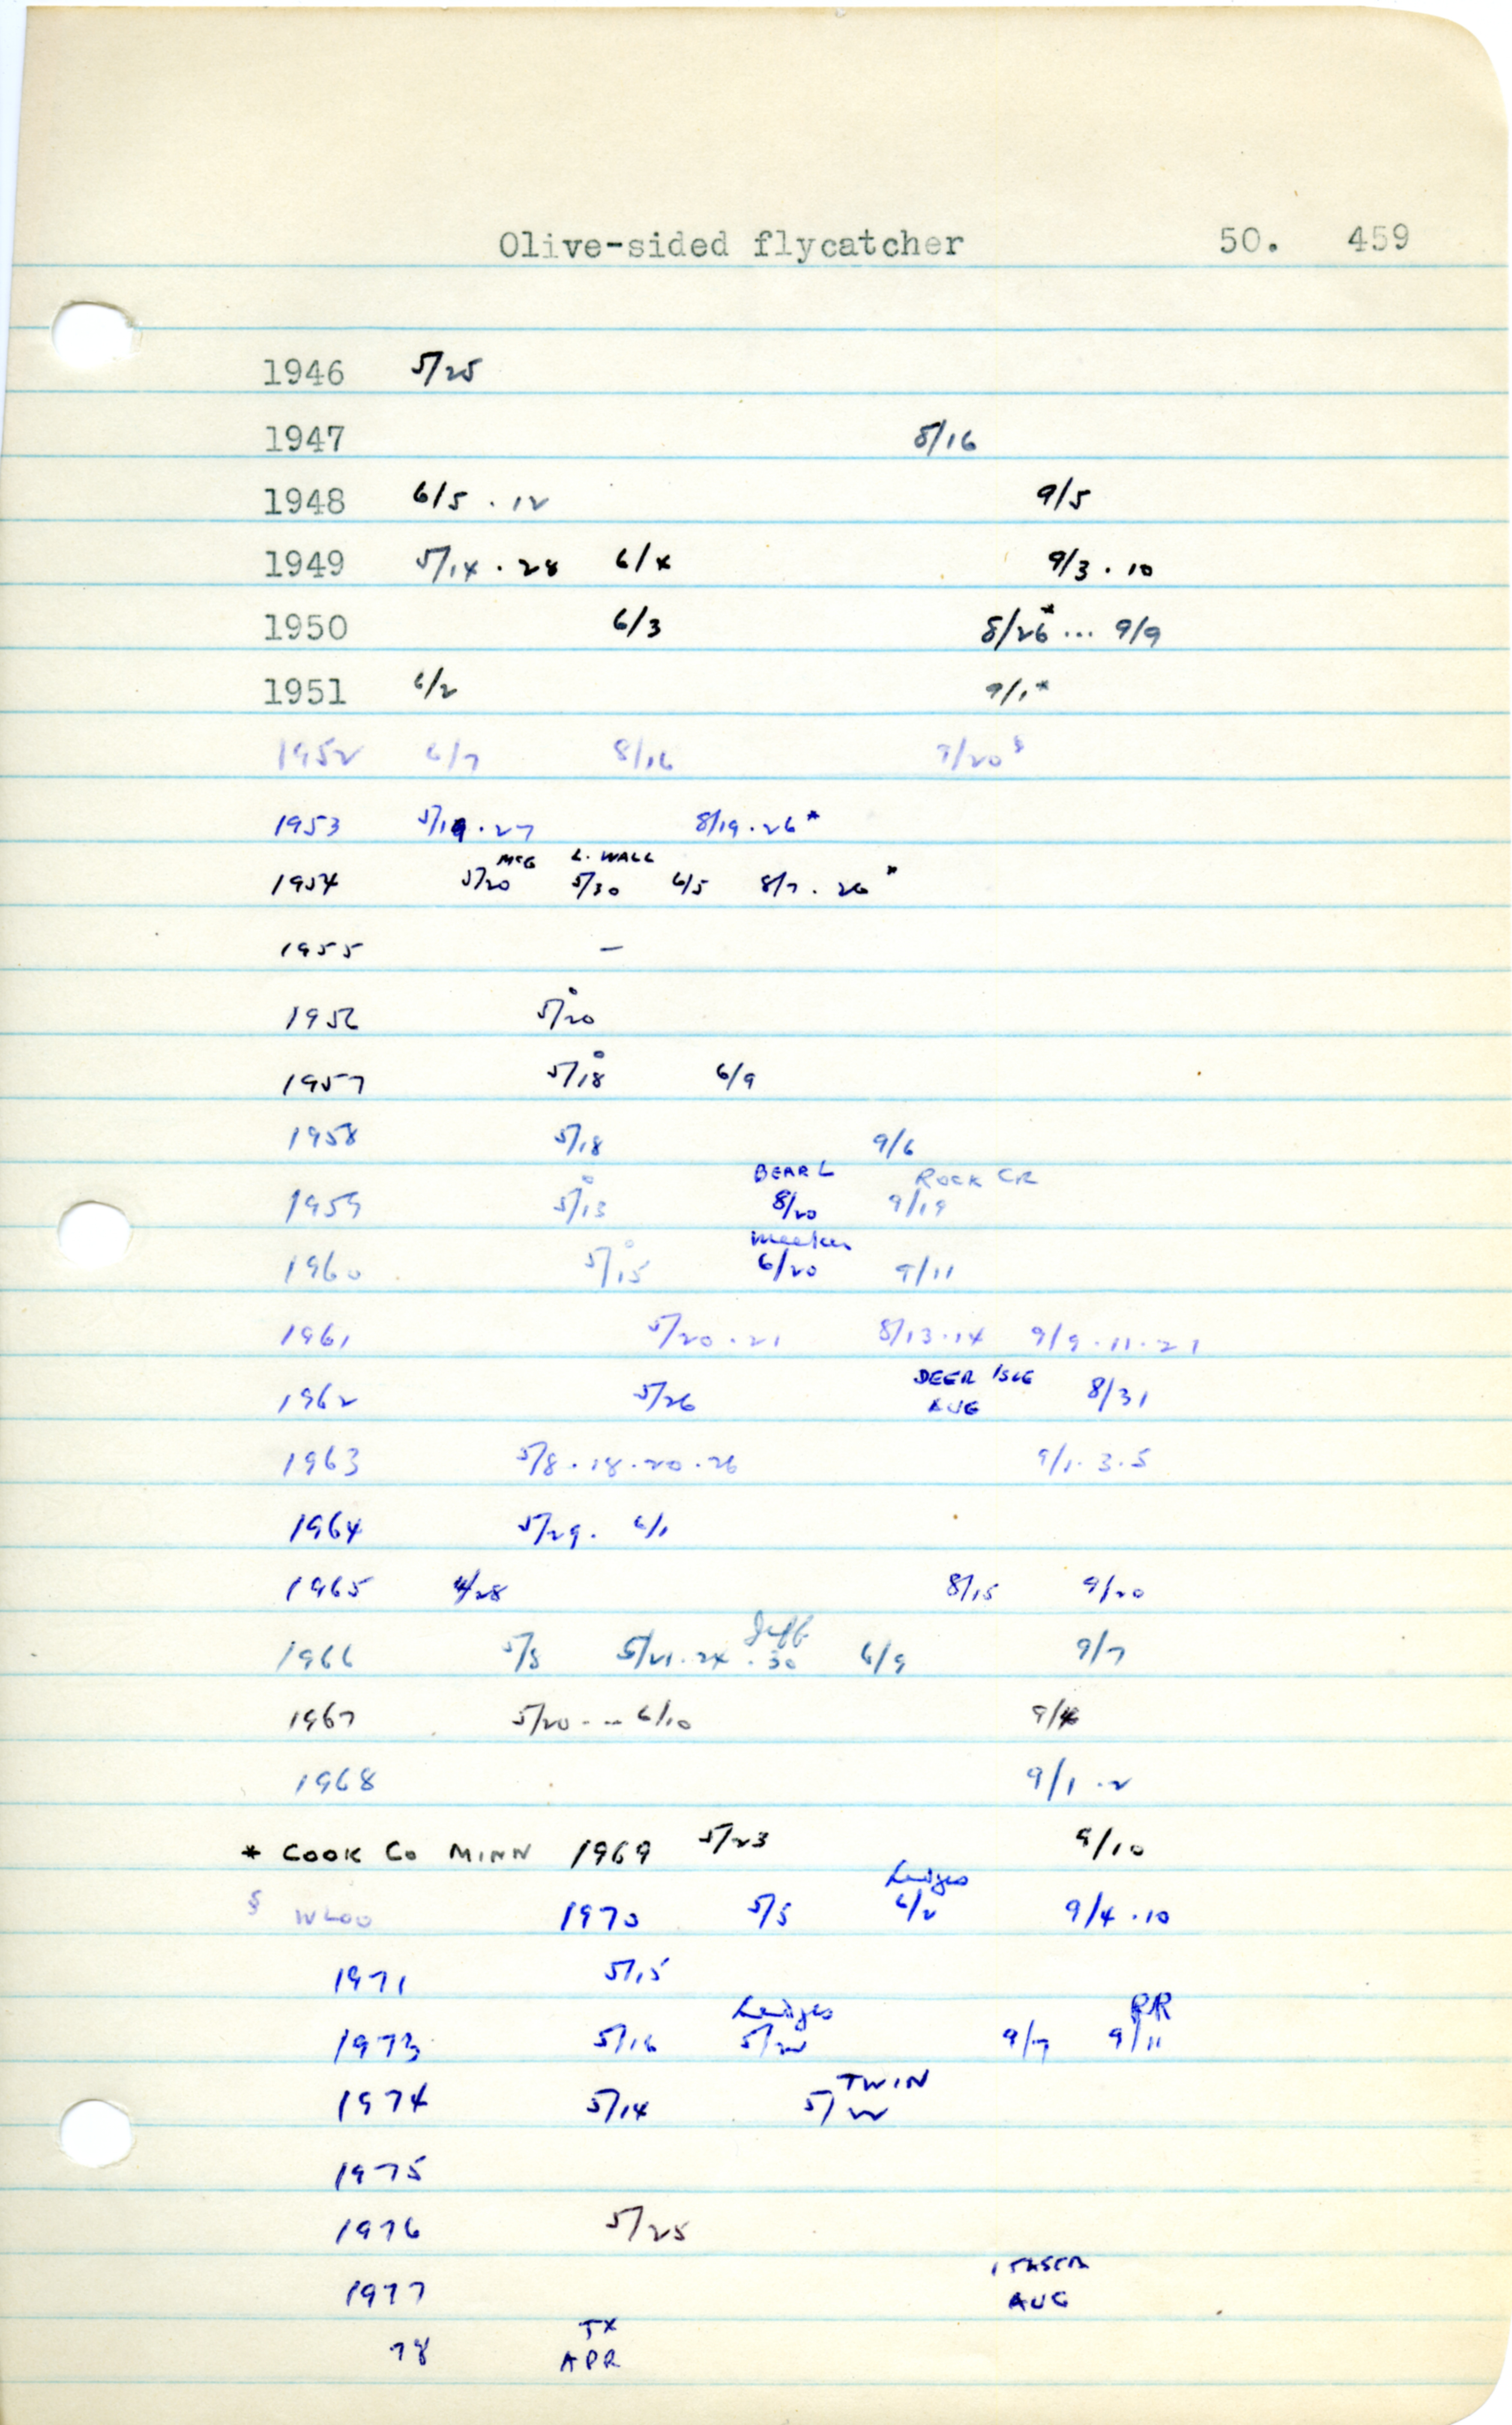 Olive-sided flycatcher 50. 459
1946 5/25
1947 8/16
1948 6/5 . 12 9/5
1949 5/14 . 28 6/4 9/3 . 10
1950 6/3 8/26* ... 9/9
1951 6/2 9/1*
1952 6/7 8/16 9/20§
1953 5/19 . 27 8/19 . 26*
McG L. WALL
1954 5/20 5/30 6/5 8/7 . 26*
1955 –
1956 5/20°
1957 5/18° 6/9
1958 5/18 9/6
BEAR L ROCK CR
1959 5/13° 8/20 9/19
Meeker
1960 5/15° 6/20 9/11
1961 5/20 . 21 8/13 . 14 9/9 . 11 . 21
DEER ISLE
1962 5/26 AUG 8/31
1963 5/8 . 18 . 20 . 26 9/1 . 3 . 5
1964 5/29 . 6/1
1965 4/28 8/15 9/20
Jeff
1966 5/8 5/21 . 24 . 30 6/9 9/7
1967 5/20 ... 6/10
1968 9/1 . 2
* COOK Co MINN 1969 5/23 9/10
Ledges
§ WLOO 1970 5/5 6/2 9/4 . 10
1971 5/15
Ledges RR
1973 5/16 5/22 9/7 9/11
TWIN
1974 5/14 5/22
1975
1976 5/25
ITASCA
1977 AUG
TX
78 APR